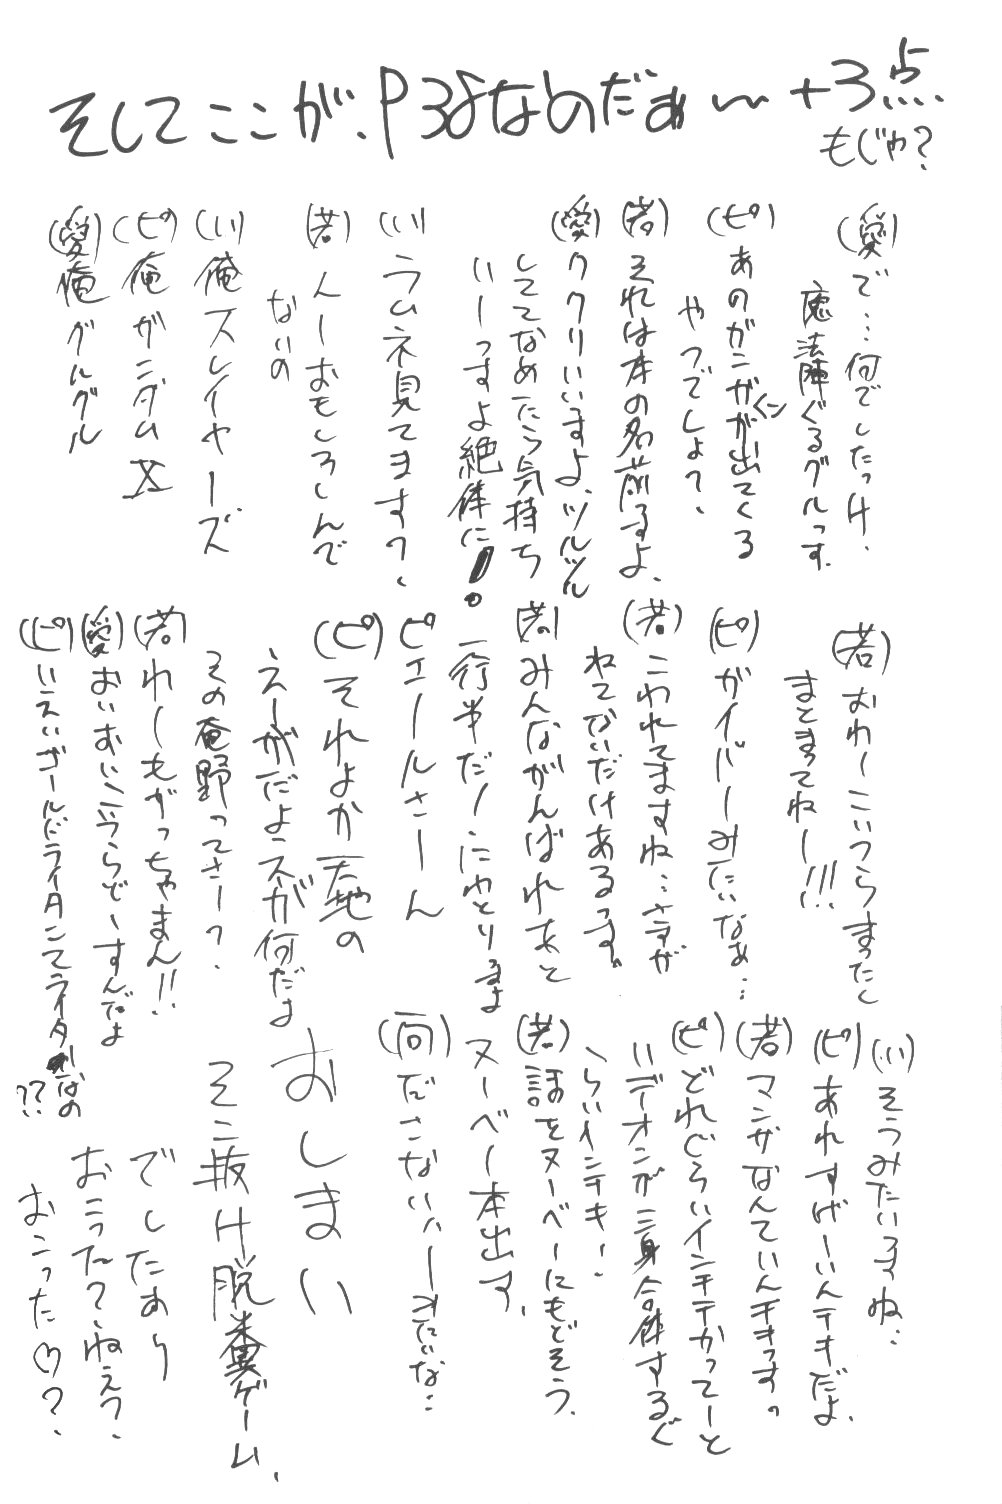 そしてここが、P38なのだぁ〜 +3点
もじゃ?
(愛)で…何でしたっけ、
魔法陣ぐるグルっす.
(ピ)あのガンガンが出てくる
やつでしょ?、
(若)それは本の名前るよ、
(愛)ククリいいますよ、ツルツル
しててなめたら気持ち
いーっすよ絶体に!。
(ハ)ラムネ見てます?、
(若)んーおもしろいんで
ないの
(ハ)俺スレイヤーズ
(ピ)俺ガンダムX
(愛)俺グルグル
(若)おわーこいつらまったく
まとまってねー!!!
(ピ)ガイバーみたいなぁ…
(若)こわれてますね…さすが
ねてないだけあるっす。
(若)みんながんばれあと
一行半だ!にわとりるよ
ピエールさーん
(ピ)それよか天地の
えーがだよスが何だよ
その庵野ってさー?、
(若)れーもがっちゃまん!!
(愛)おいおいこいつらどーすんだよ
(ピ)いえいゴールドライタンてライターなの
??
(ハ)そうみたいすね…
(ピ)あれすげーいんテキだよ.
(若)マンガなんていんチキっす。
(ピ)どれぐらいインチキかってーと
イデオンが三身合体するぐ
らいインチキ!
(若)話をヌーベーにもどそう.
ヌーベー本出す、
(向)だこないハーみたいな…
おしまい
そこ抜け脱糞ゲーム、
でしたあり
おこった?、ねえ?、
おこった♡?、